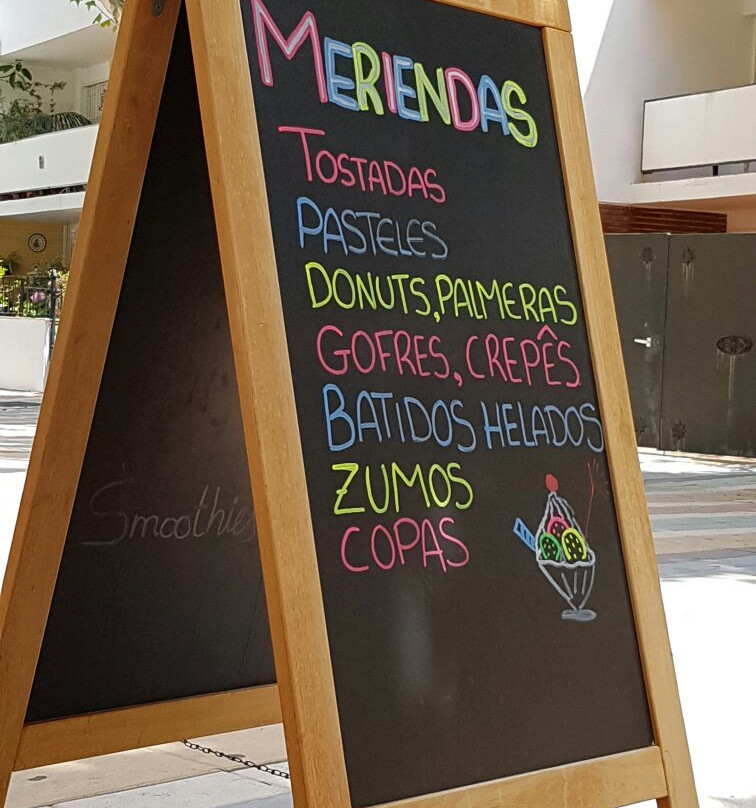 MERIENDAS
TOSTADAS
PASTELES
DONUTS, PALMERAS
GOFRES, CREPÊS
BATIDOS HELADOS
ZUMOS
COPAS
Smoothies